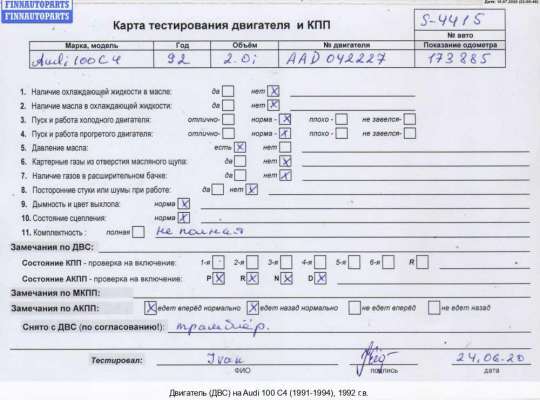 FINNAUTOPARTS
FINNAUTOPARTS
FINNAUTOPARTS
Карта тестирования двигателя и КПП
S-4415
№ авто
Марка, модель Год Объём № двигателя Показание одометра
Audi 100C4 92 2.0i AAD 042227 173885
1. Наличие охлаждающей жидкости в масле: да нет X
2. Наличие масла в охлаждающей жидкости: да нет X
3. Пуск и работа холодного двигателя: отлично- норма - X плохо - не завелся-
4. Пуск и работа прогретого двигателя: отлично- норма - X плохо - не завелся-
5. Давление масла: есть X нет
6. Картерные газы из отверстия масляного щупа: да нет X
7. Наличие газов в расширительном бачке: да нет X
8. Посторонние стуки или шумы при работе: да нет X
9. Дымность и цвет выхлопа: норма X
10. Состояние сцепления: норма X
11. Комплектность : полная не полная
Замечания по ДВС:
Состояние КПП - проверка на включение: 1-я 2-я 3-я 4-я 5-я 6-я R
Состояние АКПП - проверка на включение: P X R X N X D X
Замечания по МКПП:
Замечания по АКПП: X едет вперёд нормально X едет назад нормально не едет вперёд не едет назад
Снято с ДВС (по согласованию!): трамблёр.
Тестировал: Ivan 24.06.20
ФИО подпись дата
Двигатель (ДВС) на Audi 100 C4 (1991-1994), 1992 г.в.